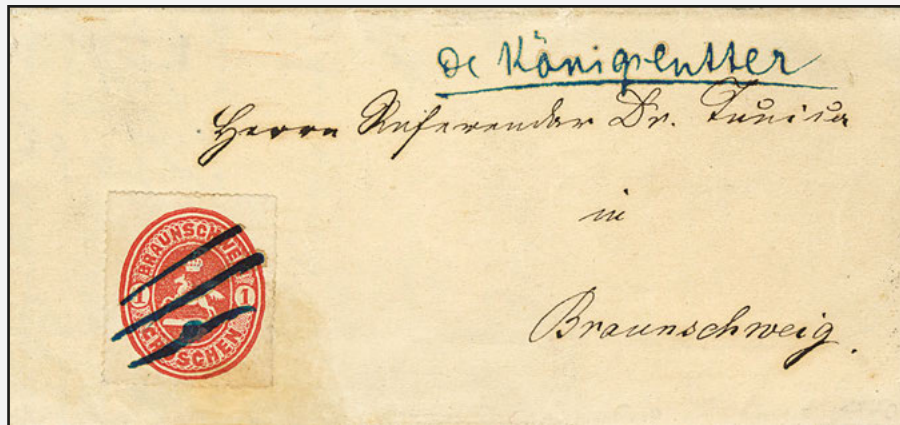 de Königslutter
Herrn Referendar Dr.
in
Braunschweig.
BRAUNSCHWEIG
1 1
GROSCHEN